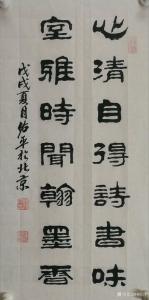 心清自得詩書味
室雅時聞翰墨香
戊戌夏月佑平於北京